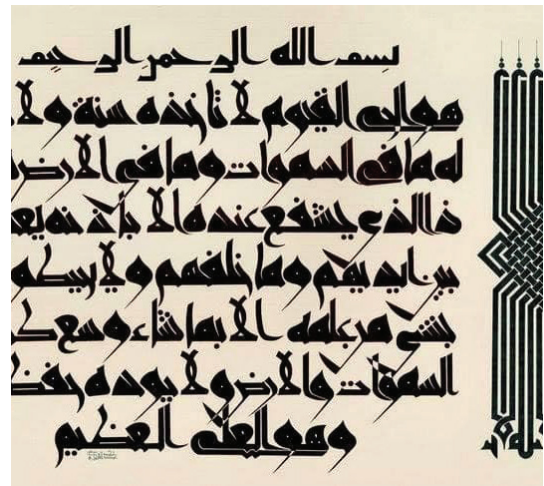 بسم الله الرحمن الرحيم
هو الحي القيوم لا تاخذه سنة ولا
له ما في السموات وما في الارض
ذا الذي يشفع عنده الا باذنه يع
بين ايديهم وما خلفهم ولا يحيطو
بشيء من علمه الا بما شاء وسع كر
السموات والارض ولا يوده حفظ
وهو العلي العظيم